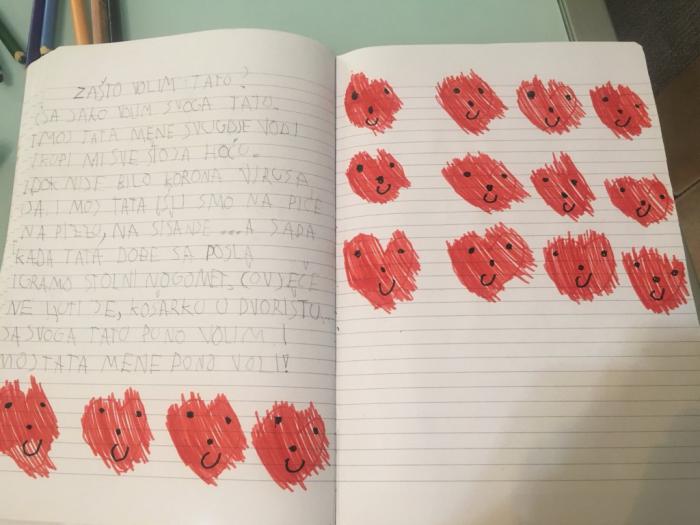 ZAŠTO VOLIM TATO?
JA JAKO VOLIM SVOGA TATO.
I MOJ TATA MENE SVUGDJE VODI
I KUPI MI SVE ŠTO JA HOĆU.
I DOK NIJE BILO KORONA VIRUSA
JA I MOJ TATA IŠLI SMO NA PIĆE
NA PIZZU, NA ŠIŠANJE ... A SADA
KADA TATA DOĐE SA POSLA
IGRAMO STOLNI NOGOMET, ČOVJEČE
NE LJUTI SE, KOŠARKU U DVORIŠTU...
JA SVOGA TATO PUNO VOLIM!
MOJ TATA MENE PUNO VOLI!